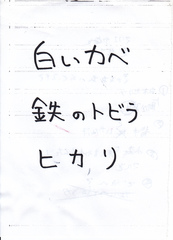 白いカベ
鉄のトビラ
ヒカリ